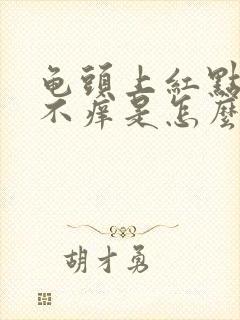 龟頭上紅點
不痒是怎麼
胡才勇